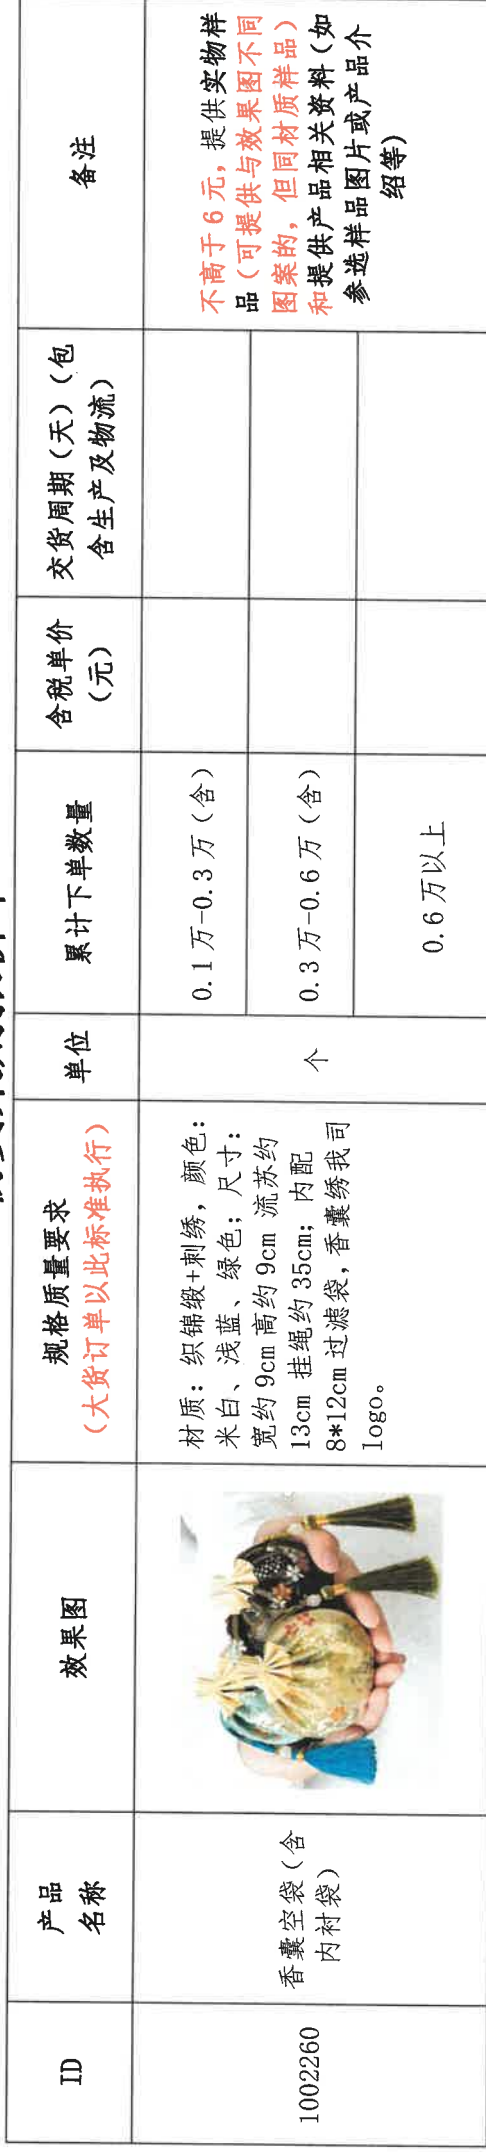 ID
产品
名称
效果图
规格质量要求
(大货订单以此标准执行)
单位
累计下单数量
含税单价
(元)
交货周期(天)(包
含生产及物流)
备注
1002260
香囊空袋(含
内衬袋)
材质：织锦缎+刺绣，颜色：
米白、浅蓝、绿色；尺寸：
宽约9cm 高约9cm 流苏约
13cm 挂绳约35cm；内配
8*12cm 过滤袋，香囊绣我司
logo。
个
0.1万-0.3万(含)
0.3万-0.6万(含)
0.6万以上
不高于6元，提供实物样
品(可提供与效果图不同
图案的，但同材质样品)
和提供产品相关资料(如
参选样品图片或产品介
绍等)